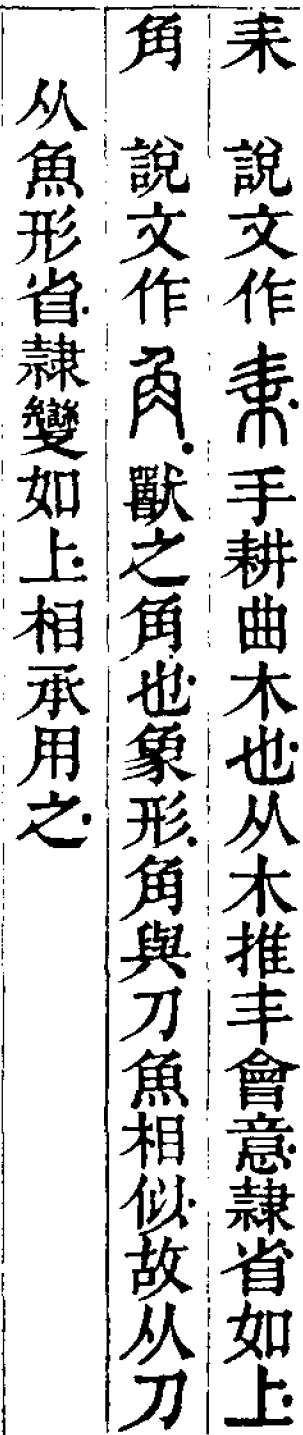 耒　說文作耒手耕曲木也从木推丰會意隷省如上
角　說文作角獸之角也象形角與刀魚相似故从刀
从魚形省隷變如上相承用之